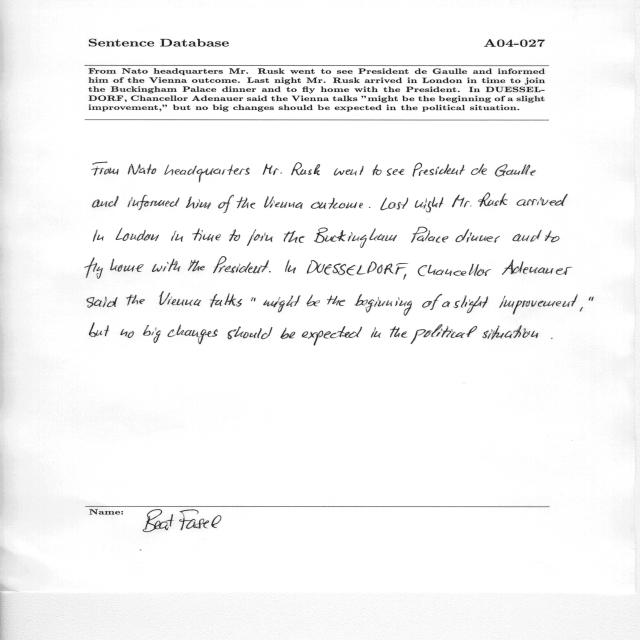 Sentence Database A04-027
From Nato headquarters Mr. Rusk went to see President de Gaulle and informed
him of the Vienna outcome. Last night Mr. Rusk arrived in London in time to join
the Buckingham Palace dinner and to fly home with the President. In DUESSEL-
DORF, Chancellor Adenauer said the Vienna talks "might be the beginning of a slight
improvement," but no big changes should be expected in the political situation.
From Nato headquarters Mr. Rusk went to see President de Gaulle
and informed him of the Vienna outcome. Last night Mr. Rusk arrived
in London in time to join the Buckingham Palace dinner and to
fly home with the President. In DUESSELDORF, Chancellor Adenauer
said the Vienna talks "might be the beginning of a slight improvement,"
but no big changes should be expected in the political situation.
Name: Beat Fasel